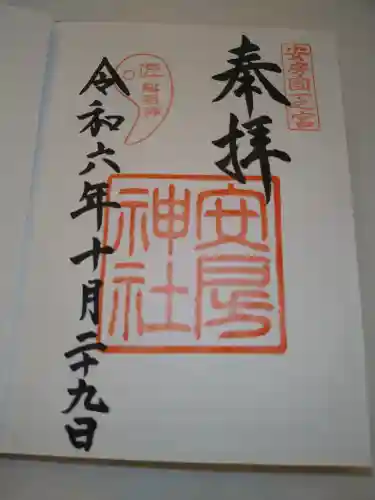 安房国一之宮
奉拝
安房
神社
令和六年十月二十九日